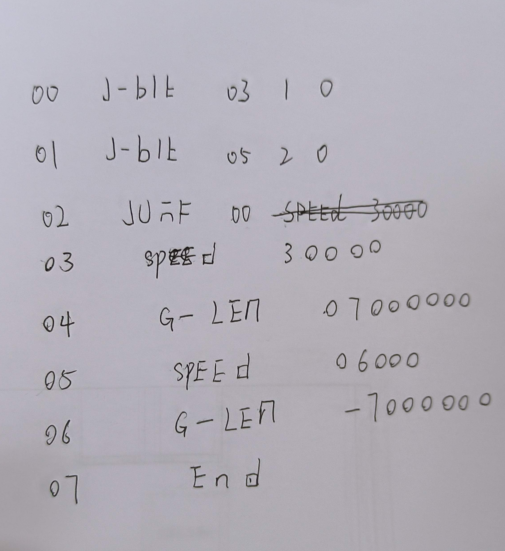 00 J-bIt 03 1 0
01 J-bIt 05 2 0
02 JUñF 00 SPEEd 30000
03 SPEEd 30000
04 G-LEN 07000000
05 SPEEd 06000
06 G-LEN -7000000
07 End